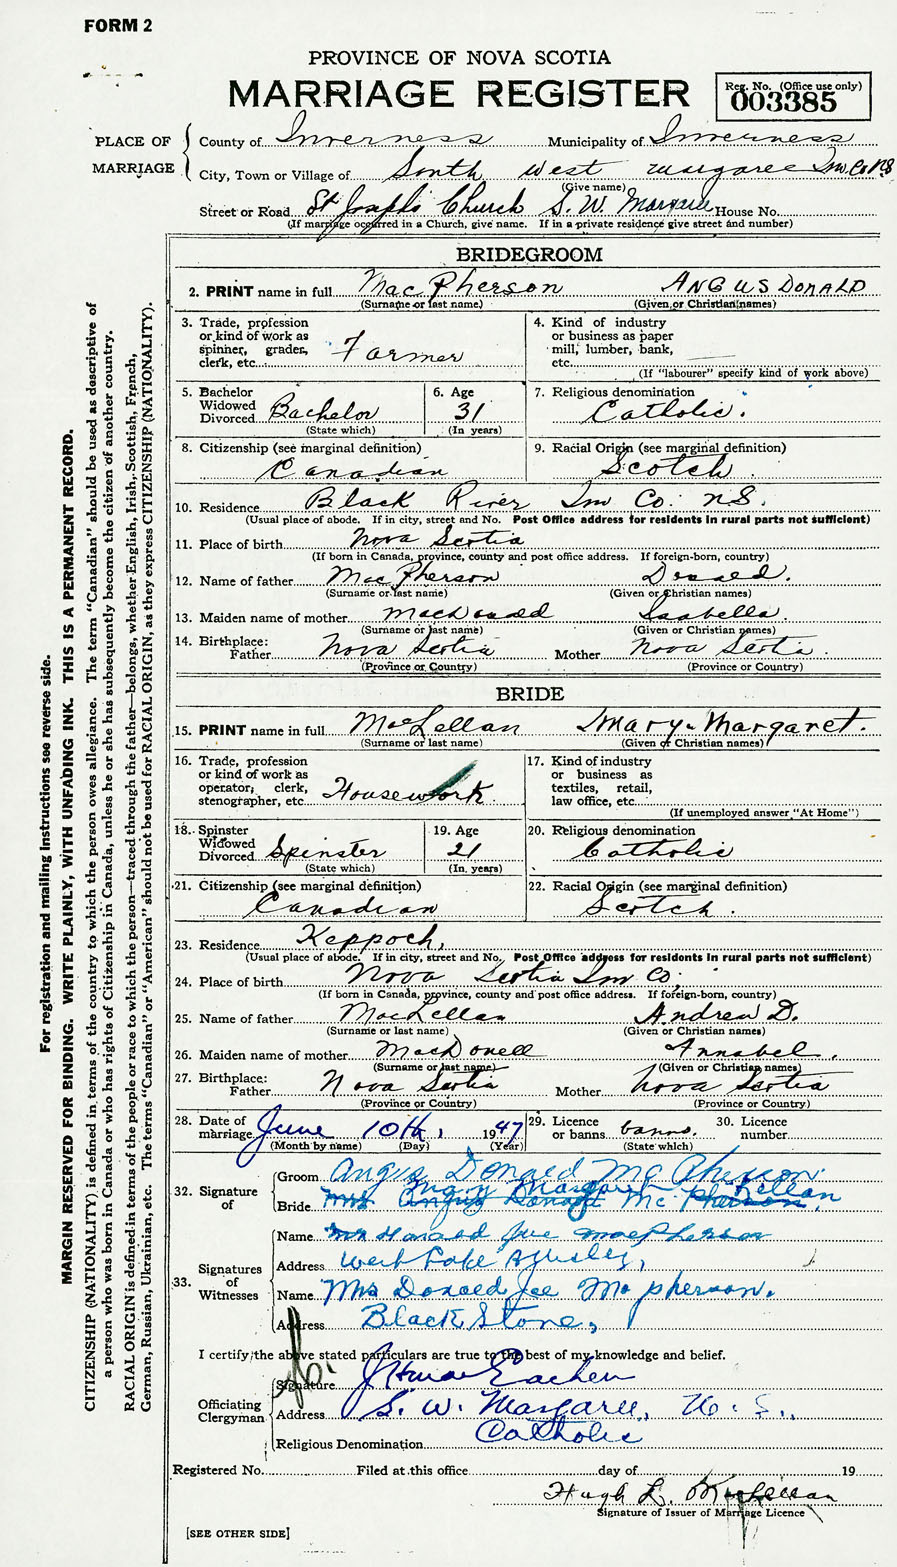 FORM 2
PROVINCE OF NOVA SCOTIA
MARRIAGE REGISTER
Reg. No. (Office use only)
003385
PLACE OF MARRIAGE
County of Inverness Municipality of Inverness
City, Town or Village of South West Margaree Inv. Co N.S
(Give name)
Street or Road St Josephs Church S. W. Margaree House No.
(If marriage occurred in a Church, give name. If in a private residence give street and number)
BRIDEGROOM
2. PRINT name in full MacPherson ANGUS DONALD
(Surname or last name) (Given or Christian names)
3. Trade, profession or kind of work as spinner, grader, clerk, etc. Farmer
4. Kind of industry or business as paper mill, lumber, bank, etc.
(If "labourer" specify kind of work above)
5. Bachelor Widowed Divorced Bachelor
(State which)
6. Age 31
(In years)
7. Religious denomination Catholic.
8. Citizenship (see marginal definition) Canadian
9. Racial Origin (see marginal definition) Scotch
10. Residence Black River Inv Co. N.S.
(Usual place of abode. If in city, street and No. Post Office address for residents in rural parts not sufficient)
11. Place of birth Nova Scotia
(If born in Canada, province, county and post office address. If foreign-born, country)
12. Name of father MacPherson Donald.
(Surname or last name) (Given or Christian names)
13. Maiden name of mother MacDonald Isabella.
(Surname or last name) (Given or Christian names)
14. Birthplace: Father Nova Scotia Mother Nova Scotia.
(Province or Country) (Province or Country)
BRIDE
15. PRINT name in full MacLellan Mary-Margaret.
(Surname or last name) (Given or Christian names)
16. Trade, profession or kind of work as operator, clerk, stenographer, etc. Housework
17. Kind of industry or business as textiles, retail, law office, etc.
(If unemployed answer "At Home")
18. Spinster Widowed Divorced Spinster
(State which)
19. Age 21
(In years)
20. Religious denomination Catholic
21. Citizenship (see marginal definition) Canadian
22. Racial Origin (see marginal definition) Scotch.
23. Residence Keppoch,
(Usual place of abode. If in city, street and No. Post Office address for residents in rural parts not sufficient)
24. Place of birth Nova Scotia Inv Co.
(If born in Canada, province, county and post office address. If foreign-born, country)
25. Name of father MacLellan Andrew D.
(Surname or last name) (Given or Christian names)
26. Maiden name of mother MacDonell Annabel.
(Surname or last name) (Given or Christian names)
27. Birthplace: Father Nova Scotia Mother Nova Scotia
(Province or Country) (Province or Country)
28. Date of marriage June 10th, 1947
(Month by name) (Day) (Year)
29. Licence or banns banns.
(State which)
30. Licence number
32. Signature of
Groom Angus Donald McPherson.
Bride Mary Margaret McLellan
Mrs Angus Donald McPherson.
33. Signatures of Witnesses
Name Mr Donald Joe MacPherson
Address West Lake Ainslie,
Name Mrs Donald Joe McPherson.
Address Black Stone,
I certify the above stated particulars are true to the best of my knowledge and belief.
Officiating Clergyman
Signature
Address S. W. Margaree, N.S.,
Religious Denomination Catholic
Registered No. Filed at this office day of 19
Hugh L. MacLellan
Signature of Issuer of Marriage Licence
[SEE OTHER SIDE]
For registration and mailing instructions see reverse side.
MARGIN RESERVED FOR BINDING. WRITE PLAINLY, WITH UNFADING INK. THIS IS A PERMANENT RECORD.
CITIZENSHIP (NATIONALITY) is defined in terms of the country to which the person owes allegiance. The term "Canadian" should be used as descriptive of
a person who was born in Canada or who has rights of Citizenship in Canada, unless he or she has subsequently become the citizen of another country.
RACIAL ORIGIN is defined in terms of the people or race to which the person—traced through the father—belongs, whether English, Irish, Scottish, French,
German, Russian, Ukrainian, etc. The terms "Canadian" or "American" should not be used for RACIAL ORIGIN, as they express CITIZENSHIP (NATIONALITY).